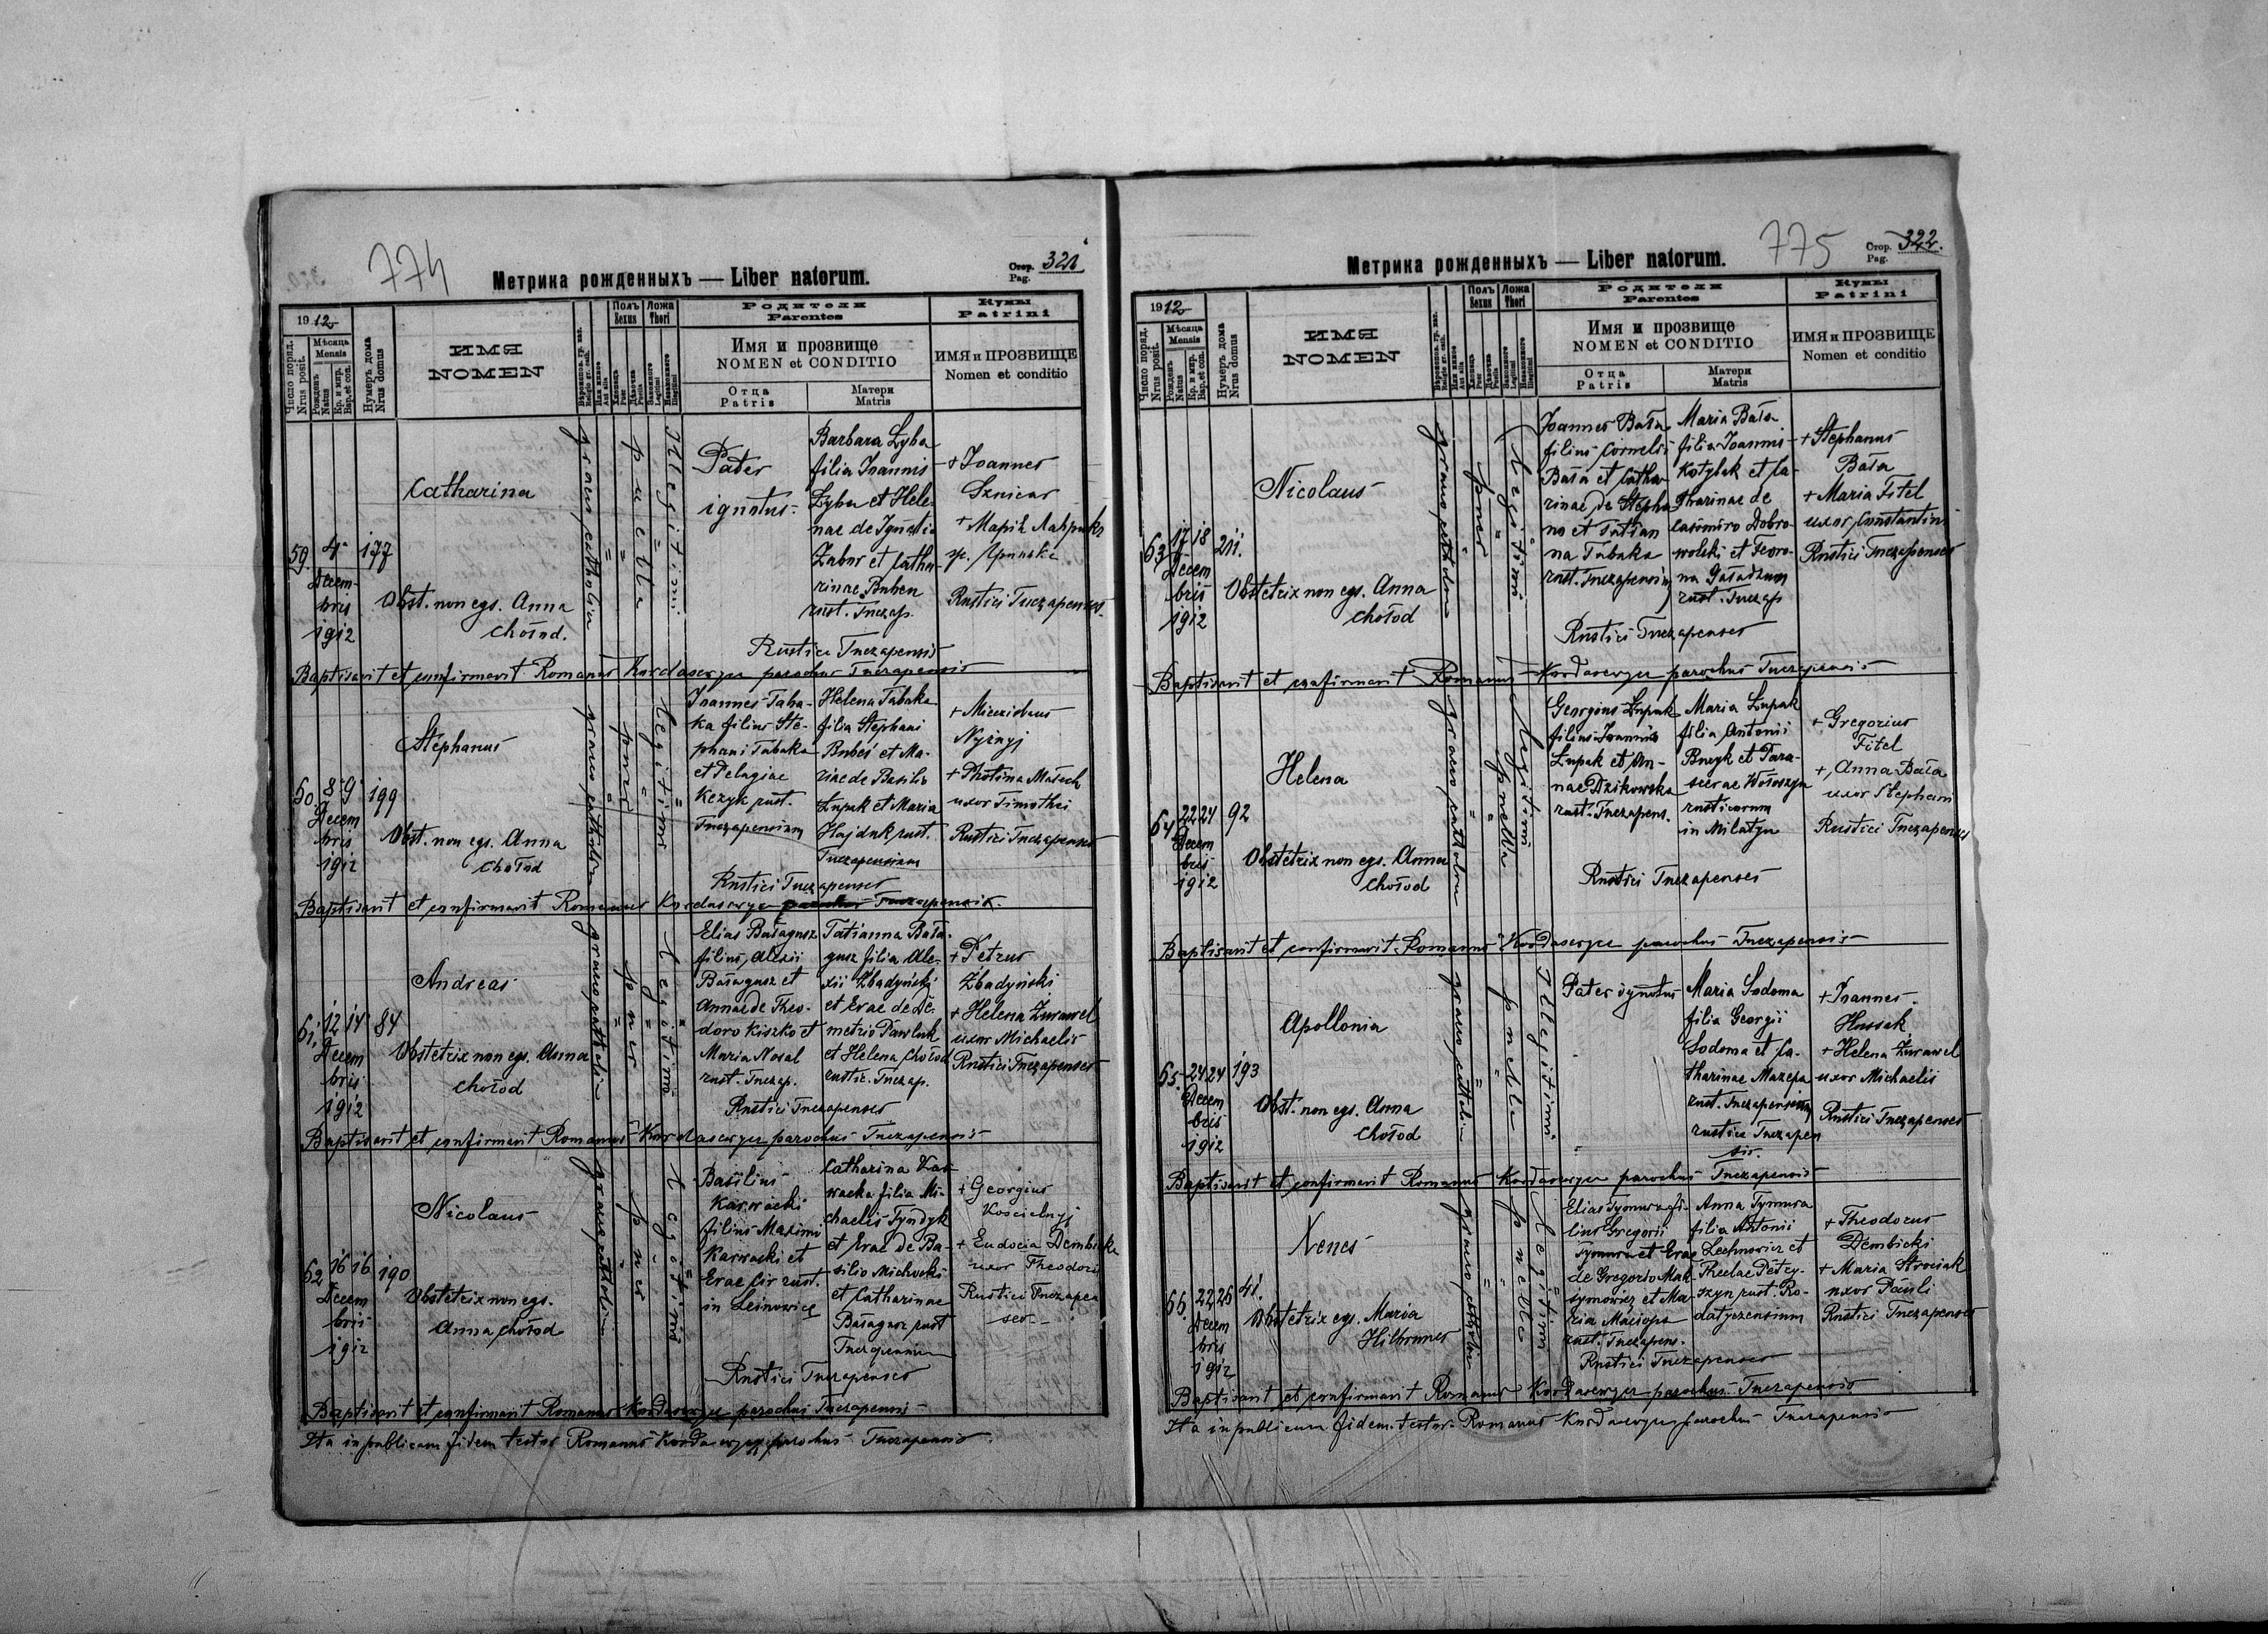 774
Метрика рожденныхъ — Liber natorum.
Стор. Pag. 321
1912
Число поряд. Nrus posit.
Мѣсяць Mensis
Рожденъ Natus
Кр. и мѵр. Bap. et con.
Нумеръ дома Nrus domus
ИМЯ
NOMEN
Полъ Sexus
Ложа Thori
Родители
Parentes
Имя и прозвище
NOMEN et CONDITIO
Отца
Patris
Матери
Matris
Кумы
Patrini
ИМЯ и ПРОЗВИЩЕ
Nomen et conditio
59. 4 177
Decem-
bris
1912
Catharina
Obst. non egs. Anna
Chołod.
graeco catholica
puella
Illegitimi
Pater
ignotus
Barbara Zyba
filia Joannis
Zyba et Hele-
nae de Ignatio
Zabor et Catha-
rinae Buben
rust. Tuczap.
+ Joannes
Sznicar
+ Марія
Rustici Tuczapenses
Rustica Tuczapensis
Baptisavit et confirmavit Romanus Kordasewycz parochus Tuczapensis
60. 8 9 199
Decem
bris
1912
Stephanus
Obst. non egs. Anna
Chołod
graeco catholica
puer
legitimi
Joannes Taba-
ka filius Ste-
phani Tabaka
et Pelagiae
Kezyk rust.
Tuczapensium
Helena Tabaka
filia Stephani
Bubeś et Ma-
riae de Basilio
Łupak et Maria
Hajduk rust.
Tuczapensium
+ Nyżnyj
+ Photina
uxor Timothei
Rustici Tuczapenses
Rustici Tuczapenses
Baptisavit et confirmavit Romanus Kordasewycz parochus Tuczapensis.
61. 12 14 84
Decem
bris
1912
Andreas
Obstetrix non egs. Anna
Chołod
graeco catholica
puer
legitimi
Elias Bałagusz
filius Alexii
Bałagusz et
Annae de Theo-
doro Kiszko et
Maria Nosal
rust. Tuczap.
Tatianna Bała-
gusz filia Ale-
xii Zbadyński
et Evae de De-
metrio Pawluk
et Helena Chołod
rustic. Tuczap.
+ Petrus
Zbadyński
+ Helena Żurawel
uxor Michaelis
Rustici Tuczapenses
Rustici Tuczapenses
Baptisavit et confirmavit Romanus Kordasewycz parochus Tuczapensis
62 16 16 190
Decem
bris
1912
Nicolaus
Obstetrix non egs.
Anna Chołod
graeco catholica
puer
legitimi
Basilius
Karwacki
filius Maximi
Karwacki et
Evae Cir rust.
in Leśnowice
Catharina Kar-
wacka filia Mi-
chaelis Tyndyk
et Evae de Ba-
silio Michocki
et Catharinae
Bałagusz rust
Tuczapensium
+ Georgius
Kościelnyj
+ Eudocia Dembicka
uxor Theodori
Rustici Tuczapen
ses
Rustici Tuczapenses
Baptisavit et confirmavit Romanus Kordasewycz parochus Tuczapensis
Ita in publicam fidem testor Romanus Kordasewycz parochus Tuczapensis
775
Метрика рожденныхъ — Liber natorum.
Стор. Pag. 322.
1912
Число поряд. Nrus posit.
Мѣсяць Mensis
Рожденъ Natus
Кр. и мѵр. Bap. et con.
Нумеръ дома Nrus domus
ИМЯ
NOMEN
Полъ Sexus
Ложа Thori
Родители
Parentes
Имя и прозвище
NOMEN et CONDITIO
Отца
Patris
Матери
Matris
Кумы
Patrini
ИМЯ и ПРОЗВИЩЕ
Nomen et conditio
63 17 18 211.
Decem
bris
1912
Nicolaus
Obstetrix non egs. Anna
Chołod
graeco catholica
puer
Legitimi
Joannes Bała
filius Cornelii
Bała et Catha-
rinae de Stepha-
no et Tatian
na Tabaka
rust. Tuczapensium
Maria Bała
filia Joannis
Kotylak et Ca-
tharinae de
Casimiro Dobro-
wolski et Fewro-
na
rust. Tuczap
+ Stephanus
Bała
+ Maria Fitel
uxor Constantin
Rustici Tuczapenses
Rustici Tuczapenses
Baptisavit et confirmavit Romanus Kordasewycz parochus Tuczapensis
64 22 24 92
Decem
bris
1912
Helena
Obstetrix non egs. Anna
Chołod
graeco catholica
puella
Legitimi
Georgius Łupak
filius Joannis
Łupak et An-
nae Dzikowska
rust. Tuczapens.
Maria Łupak
filia Antonii
Buzyk et Para-
scevae Wołoszyn
rusticorum
in Milatyn
+ Gregorius
Fitel
+ Anna Bała
uxor Stephani
Rustici Tuczapenses
Rustici Tuczapenses
Baptisavit et confirmavit Romanus Kordasewycz parochus Tuczapensis
65. 24 24 193
Decem
bris
1912
Apollonia
Obst. non egs. Anna
Chołod
graeco catholica
puella
Illegitimi
Pater ignotus
Maria Sodoma
filia Georgii
Sodoma et Ca-
tharinae Mazepa
rust. Tuczapensium
rustica Tuczapen
sis.
+ Joannes
Hussak
+ Helena Żurawel
uxor Michaelis
Rustici Tuczapenses
Baptisavit et confirmavit Romanus Kordasewycz parochus Tuczapensis
66. 22 26 41.
Decem
bris
1912
Xenes
Obstetrix egs. Maria
Hilbrunner
graeco catholica
puella
Legitimi
Elias Tymura fi-
lius Gregorii
Tymura et Evae
de Gregorio Mak-
symowicz et Ma-
ria Maciopa
rust. Tuczapens.
Anna Tymura
filia Antonii
Lechnowicz et
Theclae Petry-
szyn rust. Ro-
datyczensium
+ Theodorus
Dembicki
+ Maria Strociak
uxor Pauli
Rustici Tuczapenses
Rustici Tuczapenses
Baptisavit et confirmavit Romanus Kordasewycz parochus Tuczapensis
Ita in publicam fidem testor Romanus Kordasewycz parochus Tuczapensis